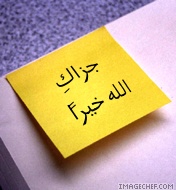 جزاكِ
الله خيراً
IMAGECHEF.COM